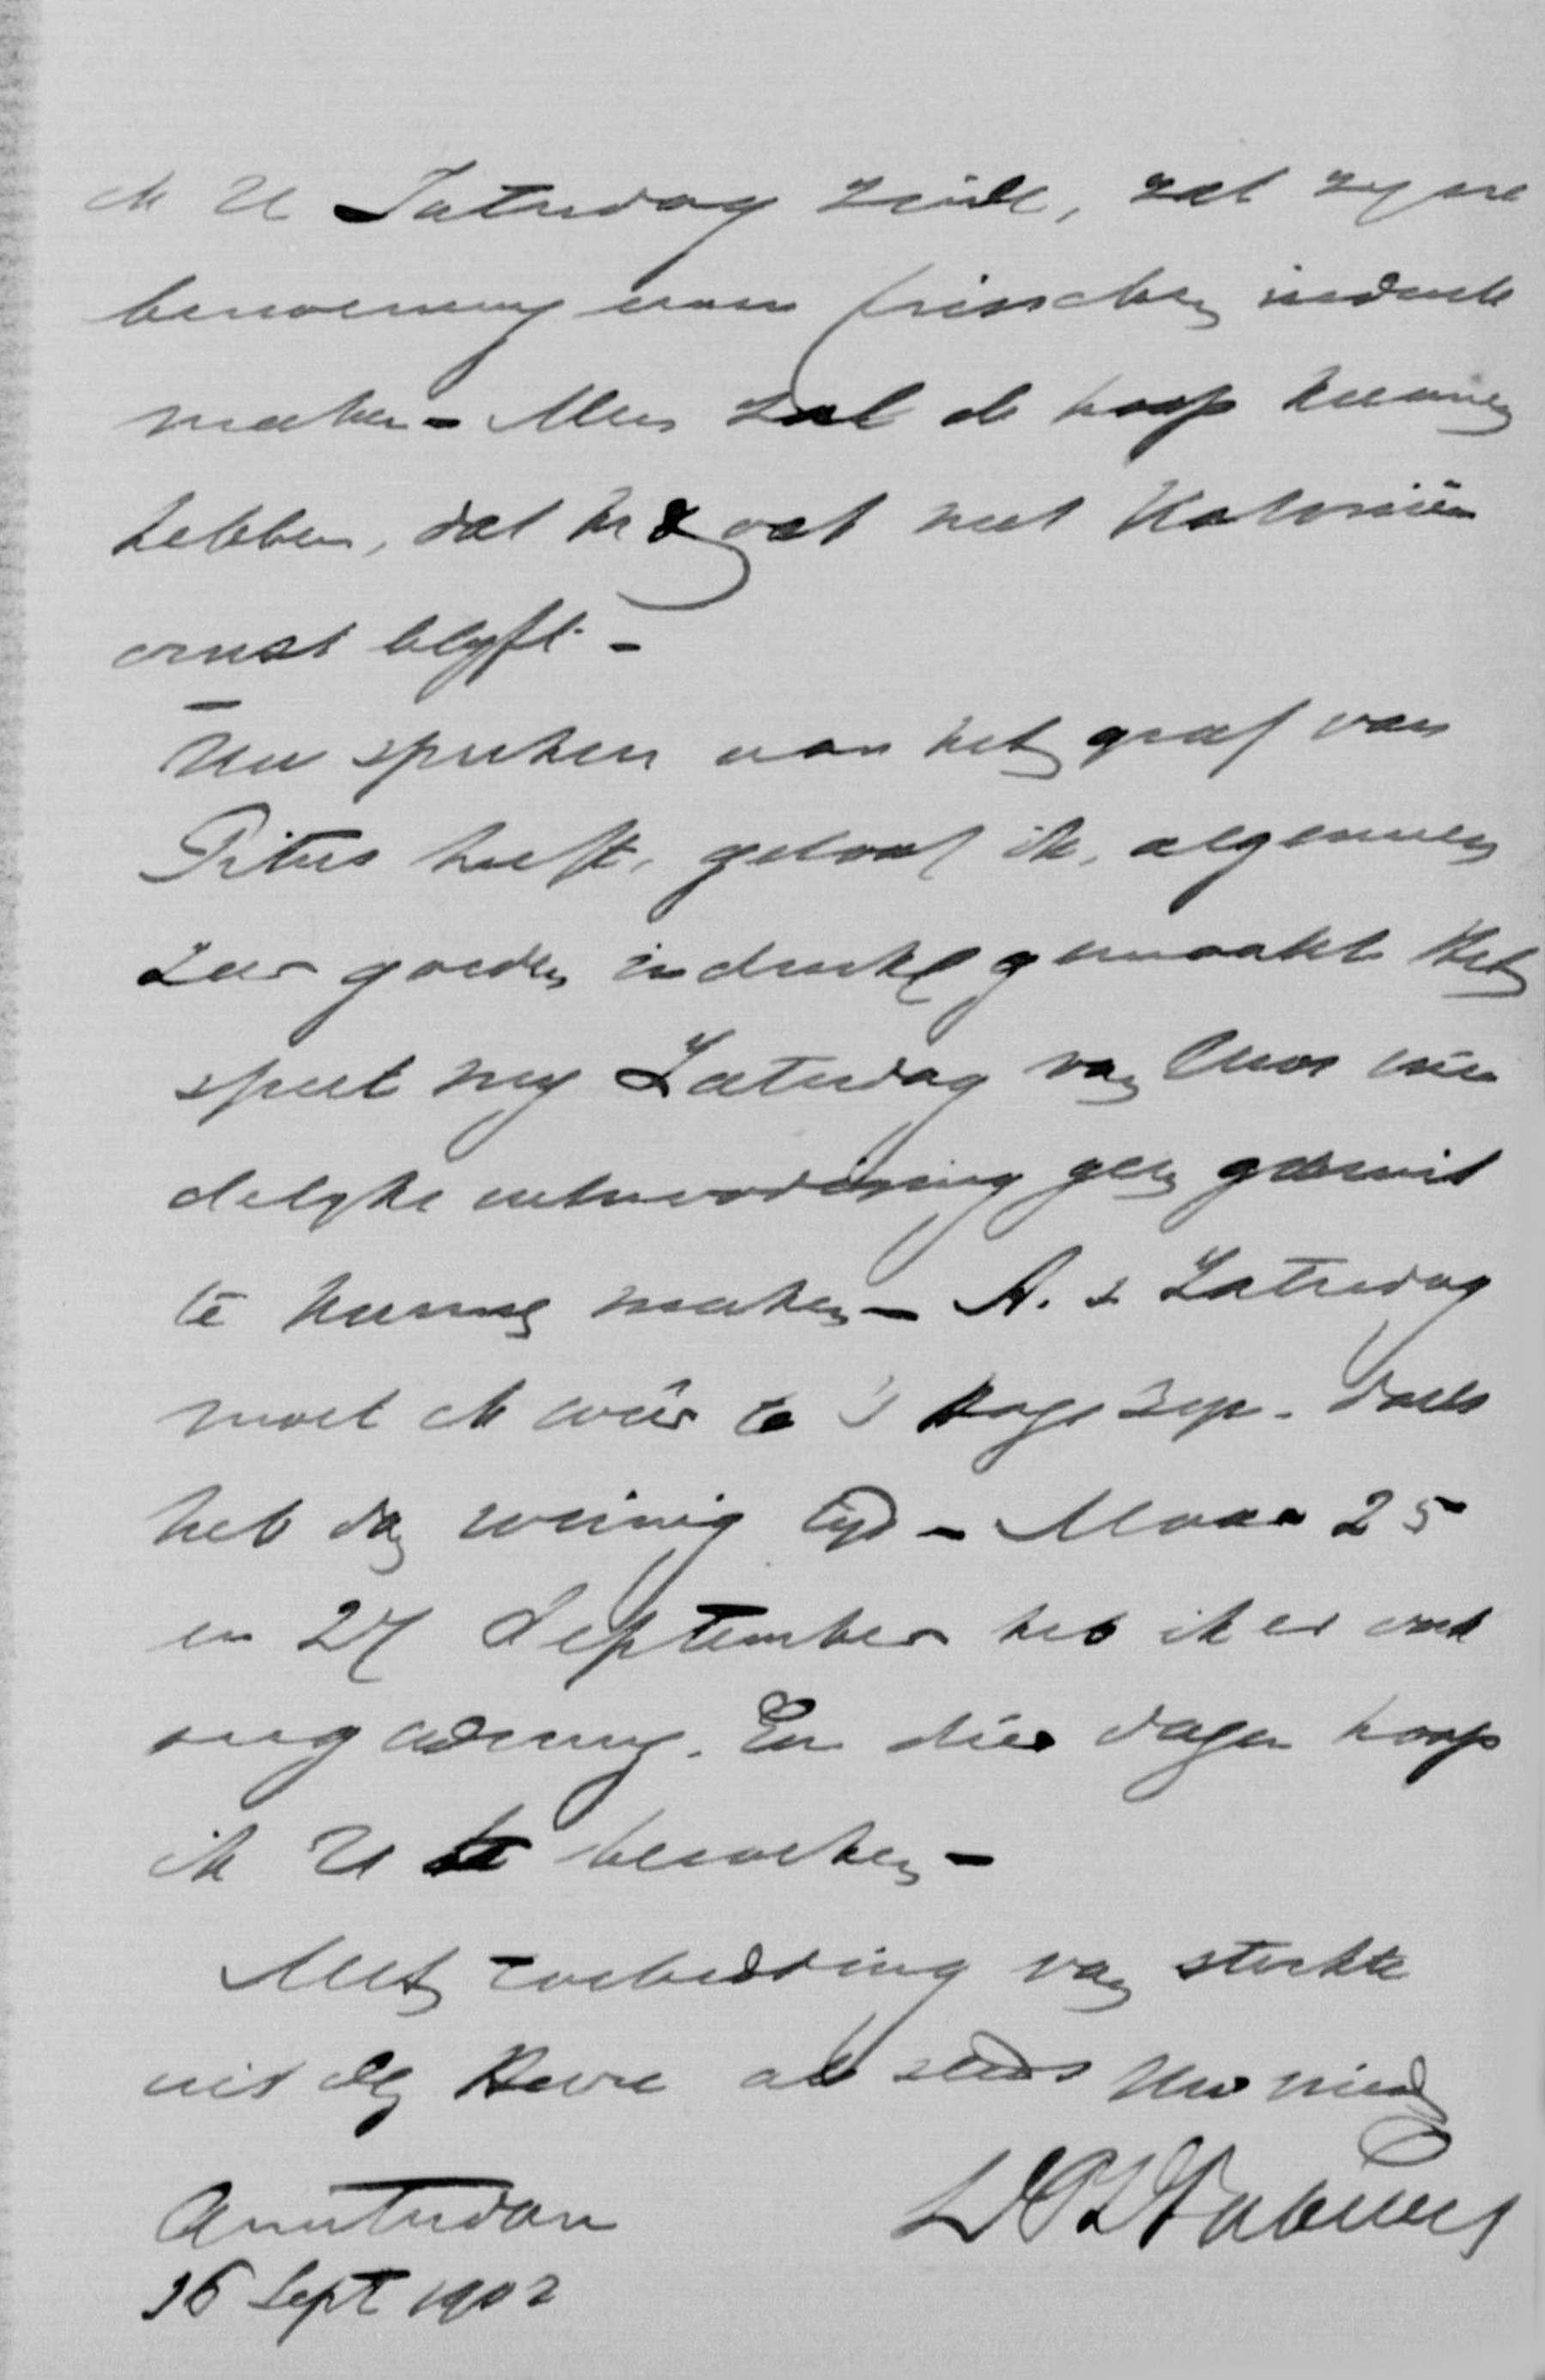 ik U Zaturdag zeide, zal zyne
benoeming een frisschen indruk
maken - Men zal de hoop kunnen
hebben, dat het met Koloniën
ernst blyft -
Uw spreken aan het graf van
Titus heeft, geloof ik, algemeen
zeer goeden indruk gemaakt Het
speet my Zaturdag van Uwe vrien
delyke uitnoodiging geen gebruik
te kunnen maken - A. s Zaturdag
moet ik weer te 's Hage zyn. doch
heb dan weinig tyd - Maar 25
en 27 September heb ik er ook
vergadering. En dier dagen hoop
ik U te bezoeken -
Met toebidding van sterkte
uit den Heere als steeds Uw vriend
Amsterdam
16 Sept 1902